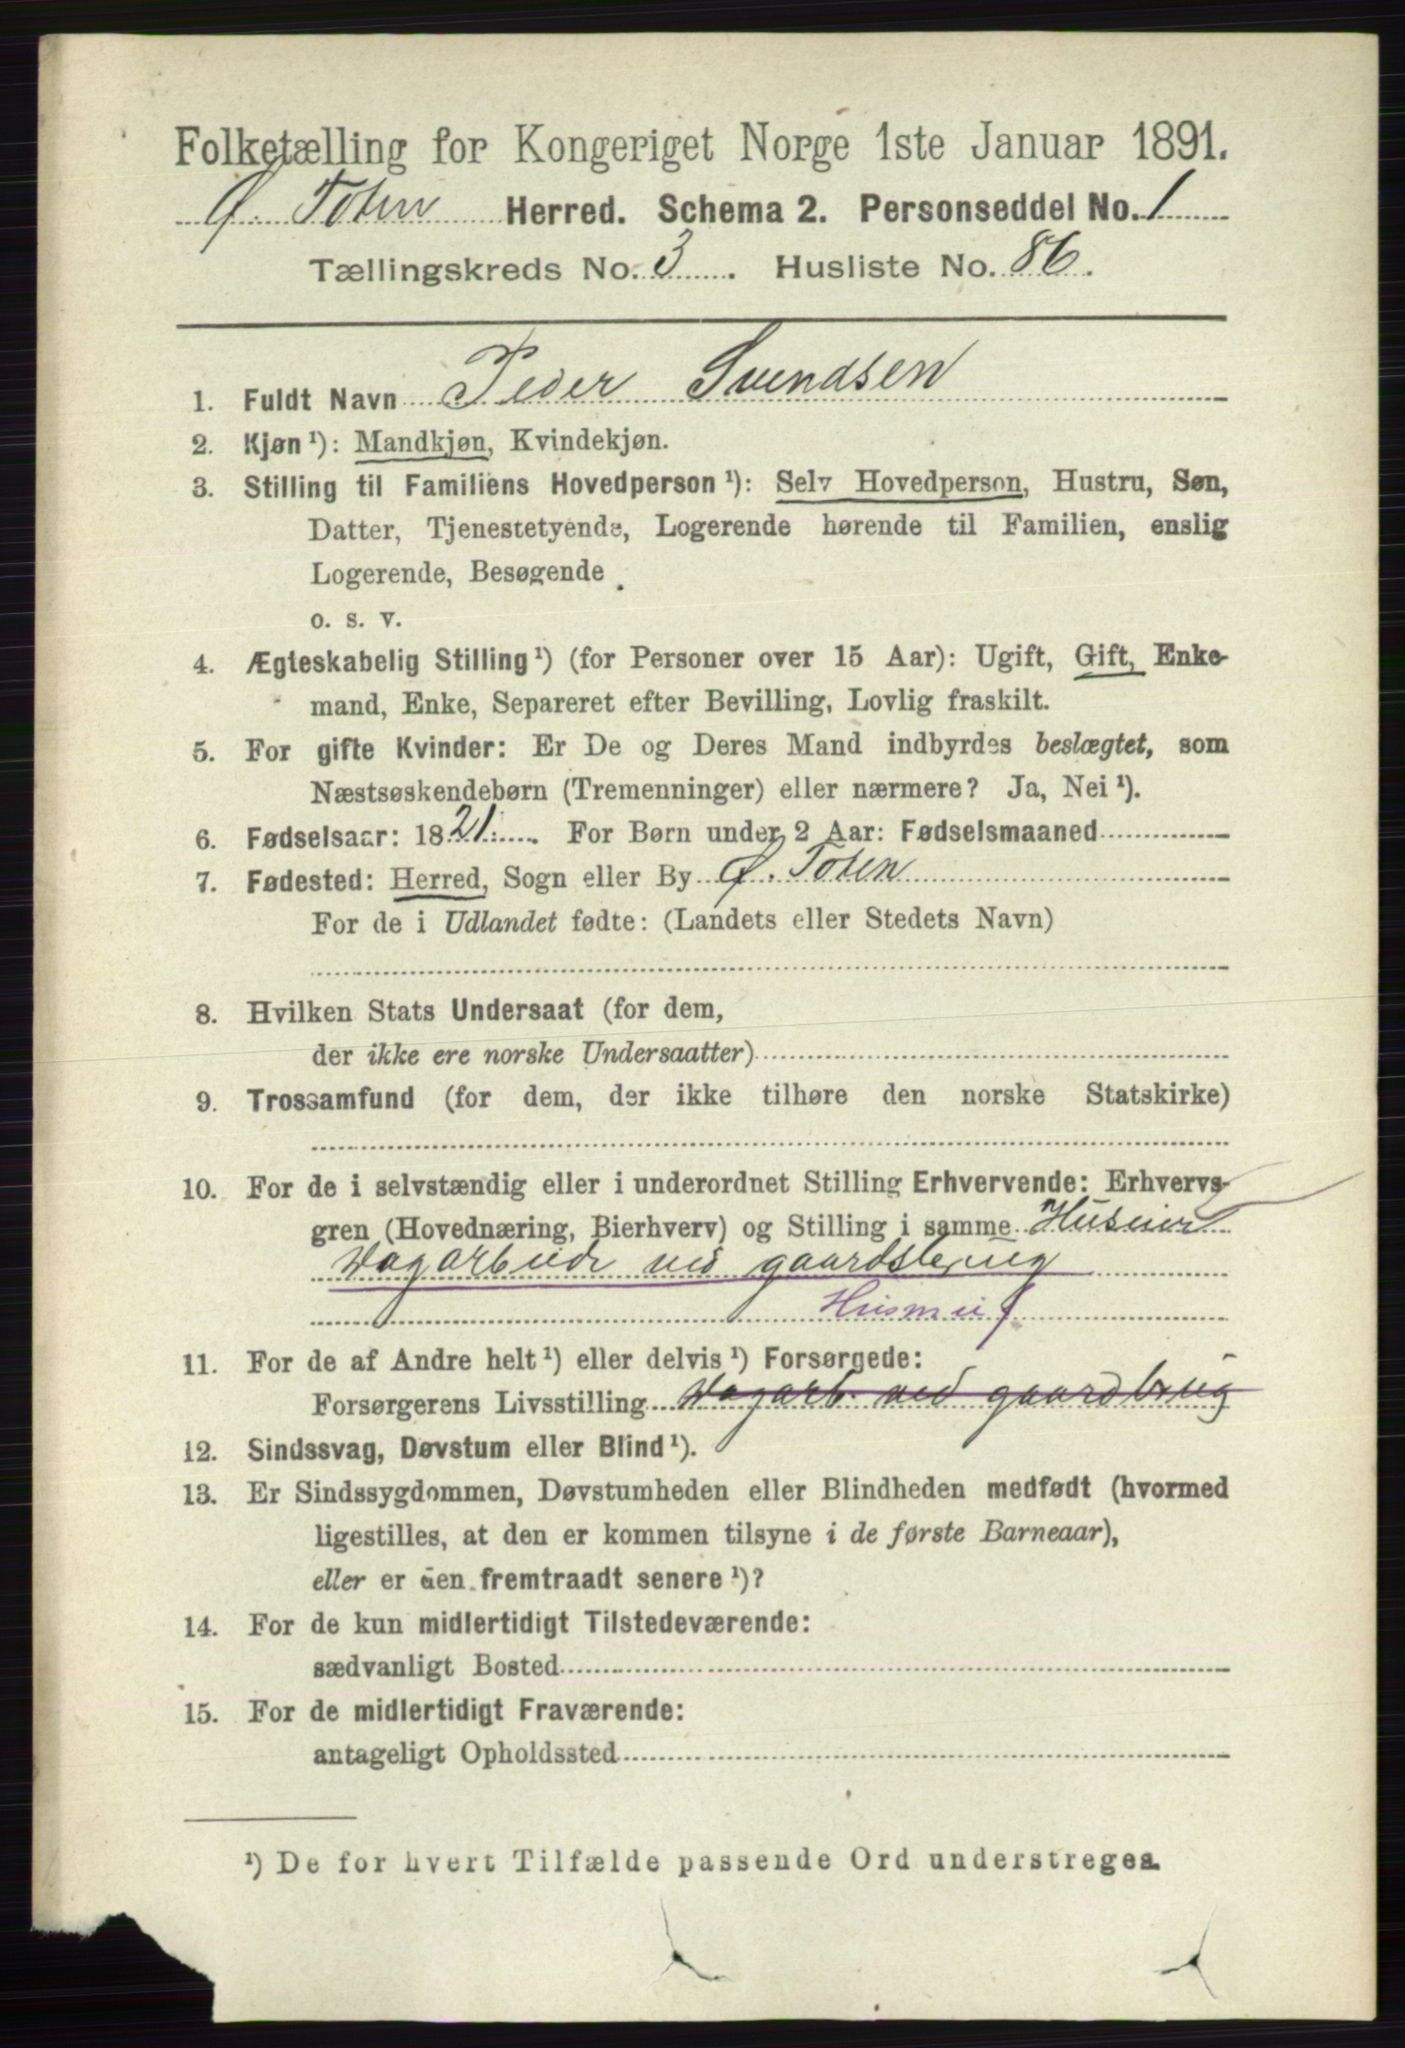 Folketælling for Kongeriget Norge 1ste Januar 1891.
Ø. Toten Herred. Schema 2. Personseddel No. 1
Tællingskreds No. 3. Husliste No. 86.
1. Fuldt Navn Peder Svendsen
2. Kjøn ¹): Mandkjøn, Kvindekjøn.
3. Stilling til Familiens Hovedperson ¹): Selv Hovedperson, Hustru, Søn,
Datter, Tjenestetyende, Logerende hørende til Familien, enslig
Logerende, Besøgende
o. s. v.
4. Ægteskabelig Stilling ¹) (for Personer over 15 Aar): Ugift, Gift, Enke-
mand, Enke, Separeret efter Bevilling, Lovlig fraskilt.
5. For gifte Kvinder: Er De og Deres Mand indbyrdes beslægtet, som
Næstsøskendebørn (Tremenninger) eller nærmere? Ja, Nei ¹).
6. Fødselsaar: 1821. For Børn under 2 Aar: Fødselsmaaned
7. Fødested: Herred, Sogn eller By Ø. Toten
For de i Udlandet fødte: (Landets eller Stedets Navn)
8. Hvilken Stats Undersaat (for dem,
der ikke ere norske Undersaatter)
9. Trossamfund (for dem, der ikke tilhøre den norske Statskirke)
10. For de i selvstændig eller i underordnet Stilling Erhvervende: Erhvervs-
gren (Hovednæring, Bierhverv) og Stilling i samme Huseier
Dagarbeide ved gaardsbrug
11. For de af Andre helt ¹) eller delvis ¹) Forsørgede:
Forsørgerens Livsstilling Dagarb. ved gaardbrug
12. Sindssvag, Døvstum eller Blind ¹).
13. Er Sindssygdommen, Døvstumheden eller Blindheden medfødt (hvormed
ligestilles, at den er kommen tilsyne i de første Barneaar),
eller er den fremtraadt senere ¹)?
14. For de kun midlertidigt Tilstedeværende:
sædvanligt Bosted
15. For de midlertidigt Fraværende:
antageligt Opholdssted
¹) De for hvert Tilfælde passende Ord understreges.